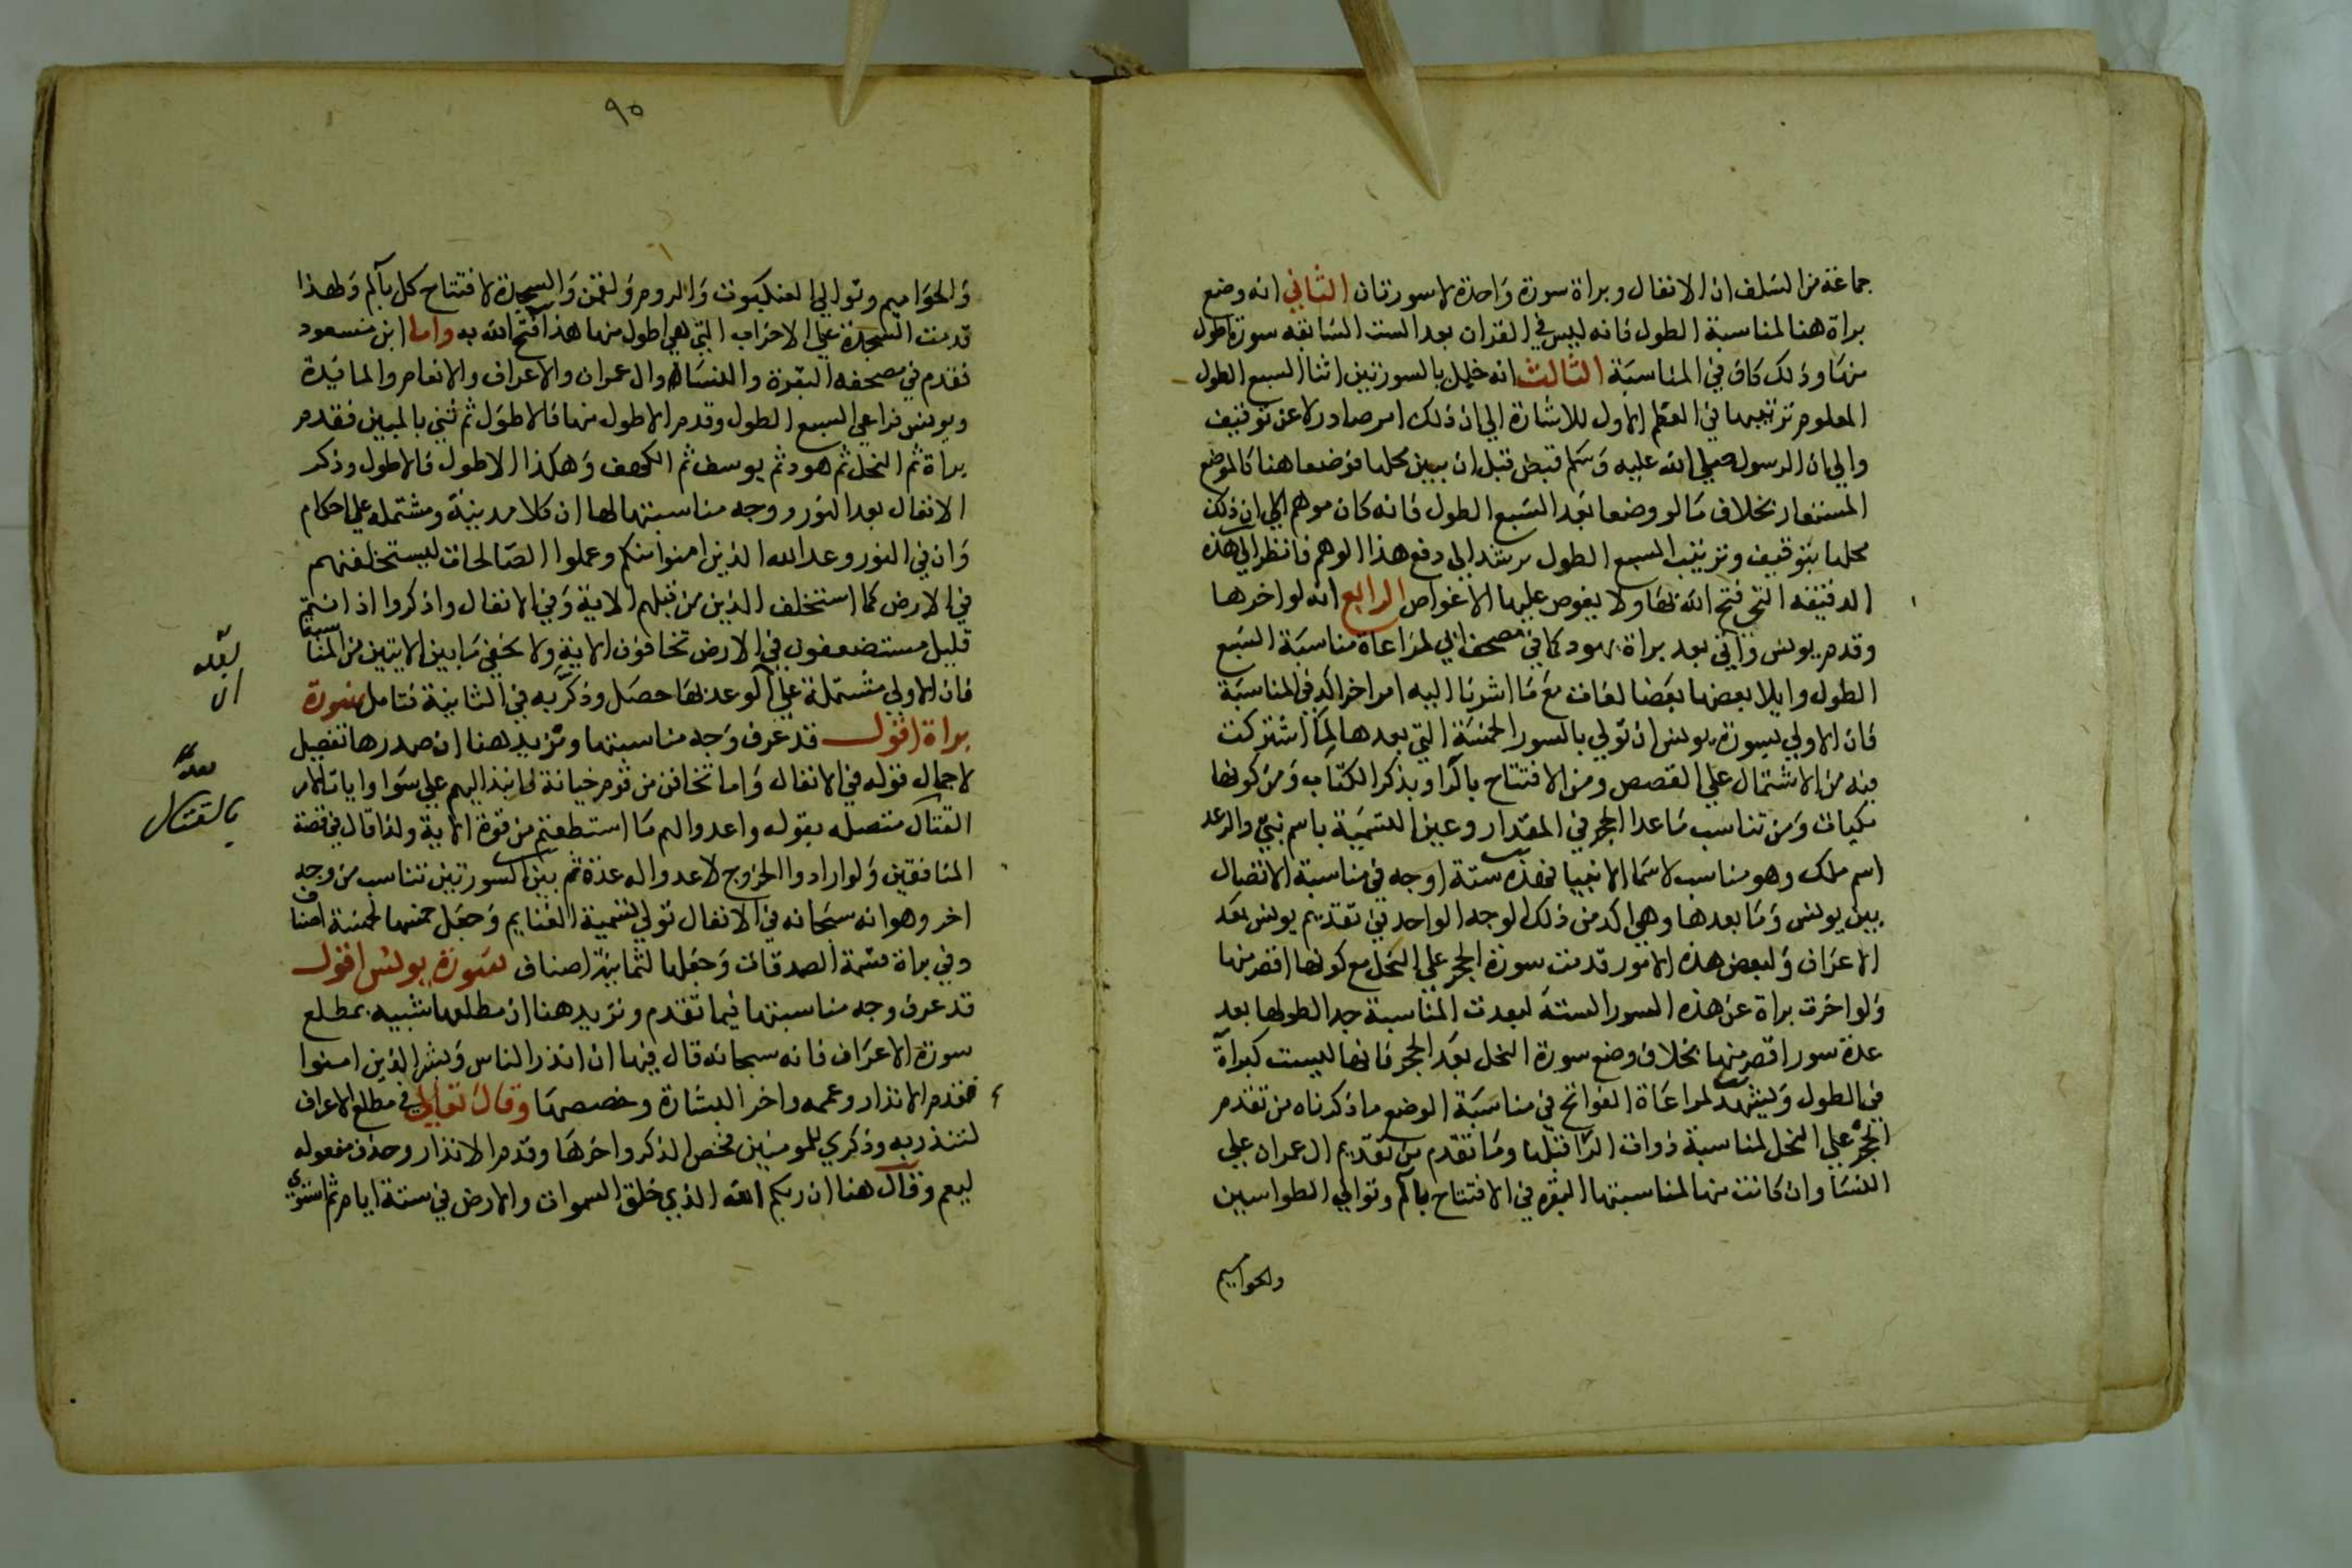 جماعة من السلف ان الانفال وبراة سورة واحدة لا سورتان الثاني انه وضع
براة هنا لمناسبة الطول فانه ليس في القران بعد الست السابقه سورة اطول
منها وذلك كاف في المناسبة الثالث انه خلل بالسورتين اثنا السبع الطول
المعلوم ترتيبها في العظم الاول للاشارة الي ان ذلك امر صادر لا عن توقيف
والي ان الرسول صلي الله عليه وسلم قبض قبل ان يبين محلها فوضعا هنا كالموضع
المستعار بخلاف ما لو وضعا بعد السبع الطول فانه كان موهم الي ان ذلك
محلها بتوقيف وترتيب السبع الطول يرشد الي دفع هذا الوهم فانظر الي هذه
الدقيقه التي فتح الله بها ولا يغوص عليها الا غواص الرابع انه لو اخرها
وقدم يونس واتي بعد براة بهود كما في مصحف ابي لمراعاة مناسبة السبع
الطول وايلا بعضها بعضا لفات مع ما اشرنا اليه امر اخر اكد في المناسبة
فان الاولي بسورة يونس ان تولي بالسور الخمسة التي بعدها لما اشتركت
فيه من الاشتمال علي القصص ومن الافتتاح بالرا وبذكر الكتاب ومن كونها
مكيات ومن تناسب ما عدا الحجر في المقدار وعين التسمية باسم نبي والرعد
اسم ملك وهو مناسب لاسما الانبيا فهذه ستة اوجه في مناسبة الاتصال
بين يونس وما بعدها وهي اكد من ذلك الوجه الواحد في تقديم يونس بعد
الاعراف ولبعض هذه الامور قدمت سورة الحجر علي النحل مع كونها اقصر منها
ولو اخرت براة عن هذه السور الستة لبعدت المناسبة جدا لطولها بعد
عدة سور اقصر منها بخلاف وضع سورة النحل بعد الحجر فانها ليست كبراة
في الطول ويشهد لمراعاة الفواتح في مناسبة الوضع ما ذكرناه من تقدم
الحجر علي النحل لمناسبة ذوات الرا قبلها وما تقدم من تقديم ال عمران علي
النسا وان كانت منها لمناسبتها البقره في الافتتاح بالم وتوالي الطواسين
والحواميم
٩٥
والحواميم وتوالي العنكبوت والروم ولقمن والسجدة لافتتاح كل بالم ولهذا
قدمت السجدة علي الاحزاب التي هي اطول منها هذا ما فتح الله به واما ابن مسعود
فقدم في مصحفه البقرة والنسا وال عمران والاعراف والانعام والمائدة
ويونس فراعي السبع الطول وقدم الاطول منها فالاطول ثم ثني بالمبين فقدم
براة ثم النحل ثم هود ثم يوسف ثم الكهف وهكذا الاطول فالاطول وذكر
الانفال بعد النور ووجه مناسبتها لها ان كلا مدنية ومشتمله علي احكام
وان في النور وعد الله الذين امنوا منكم وعملوا الصالحات ليستخلفنهم
في الارض كما استخلف الذين من قبلهم الاية وفي الانفال واذكروا اذ انتم
قليل مستضعفون في الارض تخافون الاية ولا يخفي ما بين الايتين من المناسبة
فان الاولي مشتملة علي الوعد بما حصل وذكر به في الثانية فتامل سورة
براة اقول قد عرف وجه مناسبتها ونزيد هنا ان صدرها تفصيل
لاجمال قوله في الانفال واما تخافن من قوم خيانة فانبذ اليهم علي سوا وايات الامر
القتال متصله بقوله واعدوا لهم ما استطعتم من قوة الاية ولذا قال في قصة
المنافقين ولو ارادوا الخروج لاعدوا له عدة ثم بين السورتين تناسب من وجه
اخر وهو انه سبحانه في الانفال تولي قسمة الغنايم وجعل خمسها لخمسة اصناف
وفي براة قسمة الصدقات وجعلها لثمانية اصناف سورة يونس اقول
قد عرف وجه مناسبتها فيما تقدم ونزيد هنا ان مطلعها شبيه بمطلع
سورة الاعراف فانه سبحانه قال فيها ان انذر الناس وبشر الذين امنوا
فقدم الانذار وعممه واخر البشارة وخصصها وقال تعالي في مطلع الاعراف
لتنذر به وذكري للمومنين فخص الذكر واخرها وقدم الانذار وحذف مفعوله
ليعم وقال هنا ان ربكم الله الذي خلق السموات والارض في ستة ايام ثم استوي
بالقتال